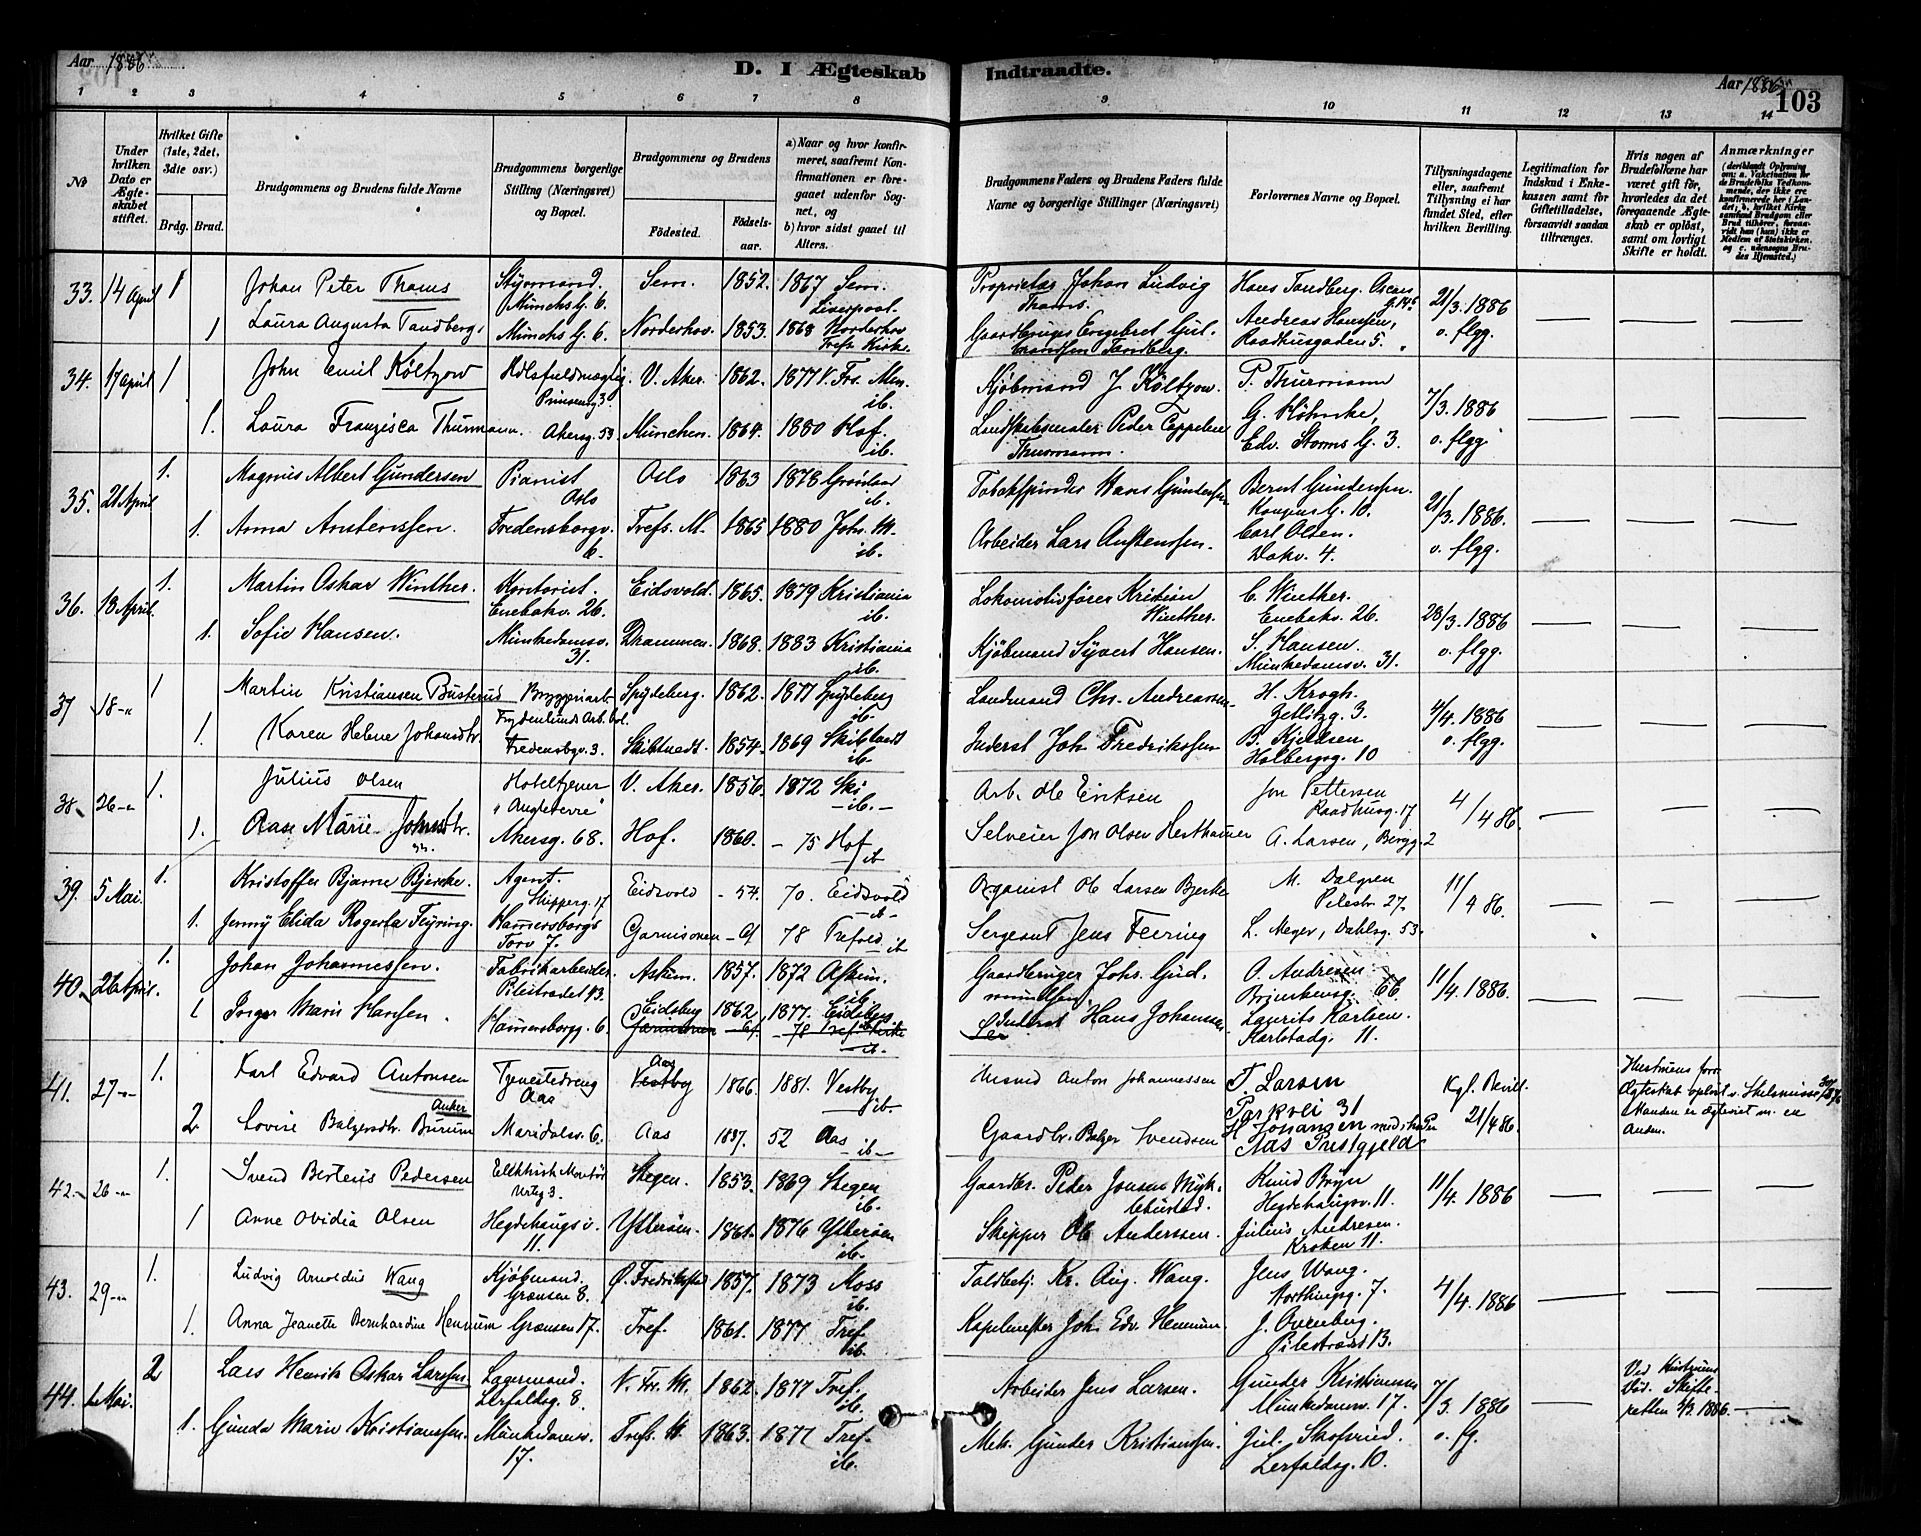 Aar 1886
D. I Ægteskab Indtraadte.
Aar 1886
103
1 2 3 4 5 6 7 8 9 10 11 12 13 14
№
Under hvilken Dato er Ægteskabet stiftet.
Hvilket Gifte (1ste, 2det, 3die osv.)
Brdg. Brud.
Brudgommens og Brudens fulde Navne
Brudgommens borgerlige Stilling (Næringsvei) og Bopæl.
Brudgommens og Brudens
Fødested. Fødselsaar.
a) Naar og hvor konfirmeret, saafremt Konfirmationen er foregaaet udenfor Sognet, og
b) hvor sidst gaaet til Alters.
Brudgommens Faders og Brudens Faders fulde Navne og borgerlige Stillinger (Næringsvei)
Forlovernes Navne og Bopæl.
Tillysningsdagene eller, saafremt Tillysning ei har fundet Sted, efter hvilken Bevilling.
Legitimation for Indskud i Enkekassen samt for Giftetilladelse, forsaavidt saadan tiltrænges.
Hvis nogen af Brudefolkene har været gift før, hvorledes da det foregaaende Ægteskab er opløst, samt om lovligt Skifte er holdt.
Anmærkninger
33. 14 April 1 Johan Peter Thams Styrmand. Munchsg. 6. Sem. 1852. 1867 Sem. Liverpool. Proprietær Johan Ludvig Thams. Hans Tandberg. Oscars g. 14 21/3. 1886 o. flgg.
1 Laura Augusta Tandberg. Munchs G. 6. Norderhov. 1853. 1868 Norderhov Trefs Kirke. Gaardbruger Engebret Gulbrandsen Tandberg. Andreas Hanssen, Raadhusgaden 5.
34. 17 april 1 John Emil Költzow Prinsensg 3. V. Aker. 1862. 1877 V. Frs. Men. ib. Kjøbmand J. Költzow. P. Thurmann 7/3. 1886 o. flgg
1. Laura Franzisca Thurmann. Akersg. 53. München. 1864. 1880 Hof. ib. Landskabsmaler Peder Cappelen Thurmann. Edv. Storms G. 3.
35. 21 April 1. Magnus Albert Gundersen Pianist Oslo Oslo 1863 1878 Grønland ib. Tobakspinder Hans Gundersen Bernt Gundersen. Kongens G. 10. 21/3. 1886. o. flgg.
1. Anna Anstensen. Fredensborgv. 6. Trefs. M. 1865 1880 Joh. M. ib. Arbeider Lars Austenssen. Carl Olsen. Wakv. 4.
36. 18 April. 1. Martin Oskar Winther. Kontorist. Enebakv. 26. Eidsvold. 1865. 1879 Kristiania ib. Lokomotivfører Kristian Winther. C. Winther. Enebakv. 26. 28/3. 1886 o. flgg.
1. Sofie Hansen. Munkedamsv. 31. Drammen. 1868. 1883 Kristiania ib. Kjøbmand Syvert Hansen. S. Hansen. Munkedamsv. 31.
37 18 -"- 1 Martin Kristiansen Busterud Bryggeriarb. Frydenlunds Arb. bol. Spydeberg. 1862. 1877 Spydeberg ib. Landmand Chr. Andreassen H. Krogh. Geblitzg. 3. 4/4. 1886 o. flgg.
1. Karen Helene Johansdtr. Fredensbgv. 3. Skibtvedt. 1854. 1869 Skibtvedt ib. Inderst Joh. Fredrikssen B. Kjeldsen Holbergsg. 10
38 26 -"- 1. Julius Olsen Hoteltjener "Angleterre" V. Aker. 1856. 1872 Ski - ib. - Arb. Ole Eriksen Jon Pettersen Raadhusg. 17 4/4 86.
1. Aase Marie Johnsdtr. Akersg. 68. Hof. 1860. - 75 Hof ib Selveier Jon Olsen A. Larsen, Bergg. 2
39. 5 Mai. 1. Kristoffer Bjarne Bjerke. Agent. Skipperg. 17 Eidsvold - 54. 70. Eidsvold ib Organist Ole Larsen Bjerke M. Dalgren Pilestr. 27. 11/4 86.
1. Jenny Elida Rogerta Feyring. Hammersborgs Torv 7. Garnisonen - 61 78 Trefold. ib Sergeant Jens Feering L. Meyer, Dahlsg. 53.
40 26 April. 1. Johan Johannessen. Fabrikarbeider. Pilestrædet 13. Askim. 1857. 1872 Askim. ib Gaardbruger Johs. Gudmundsen O. Andresen 11/4. 1886.
1 Inger Marie Hansen. Hammersborgg. 6. Eidsberg 1862 1877. Eidsberg ib. Inderst Hans Johanssen Laurits Karlsen. Karlstadg. 11.
41. 27 -"- 1. Karl Edvard Antonsen Tjenestedreng Aas Aas Vestby 1866 1881. Vestby ib. Husmd Anton Johannessen T. Larsen Parkvei 31 Kgl. Bevill. 21/4 86. Hustruens forr. Ægteskab opløst v. Skilsmisse Manden er ægteviet m. en Anden.
2 Lovise Balzersdtr. Burum Anker Maridalsv. 6. Aas 1837. 52 Aas - ib - Gaardbr. Balzer Svendsen H. Johansen Aas Prestgjeld
42. 26 -"- 1. Svend Berteus Pedersen Elektrisk Montør Urteg 3. Stegen. 1853. 1869 Stegen ib. Gaardbr. Peder Jonsen Myklebustad. Knud Bryn Hegdehaugsv. 11. 11/4. 1886
1 Anne Ovidia Olsen Hegdehaugsv. 11. Ytterøen. 1861. 1876 Ytterøen ib. Skipper Ole Anderssen. Julius Andresen. Kroken 11.
43. 29 -"- 1. Ludvig Arnoldus Wang Kjøbmand. Grænsen 8. Ø. Fredrikstad 1857. 1873 Moss ib. Toldbetj. Kr. Aug. Wang. Jens Wang. Northumsg. 7. 4/4. 1886
1. Anna Jeanette Bernhardine Hennum Grænsen 17. Tref. 1861. 1877 Tref. ib. Kapelmester Joh. Edv. Hennum. J. Overberg. Pilestrædet 13.
44. Mai. 2 Lars Henrik Oskar Larssen. Lagermand. Lerfaldsg. 8. V. Frs. M. 1862. 1877 Tref. ib. Arbeider Jens Larsen. Gunder Kristianssen Munkedamsv. 17. 7/3. 1886 o. fg. Ved Hustruens Død. Skifteretten 3/3. 1886.
1. Gunda Marie Kristianssen. Munkedamsv. 17. Trefs. M. 1863. 1877 Tref. ib. Mek. Gunder Kristianssen. Lerfaldsg. 10.